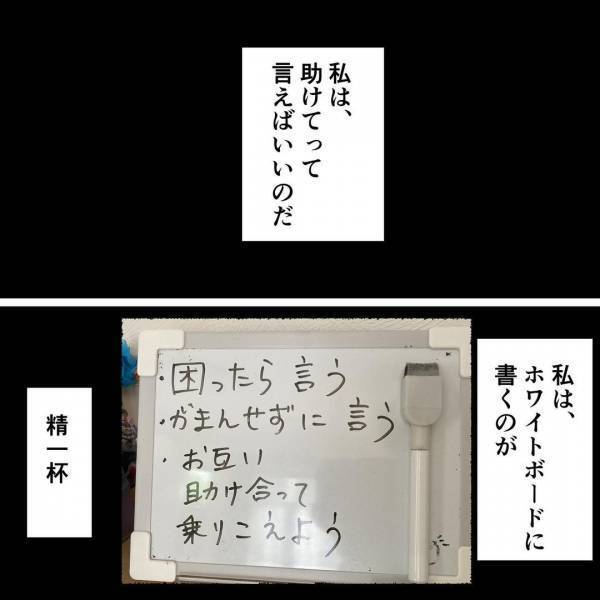 私は、
助けてって
言えばいいのだ
私は、
ホワイトボードに
書くのが
・困ったら言う
・がまんせずに言う
・お互い
助け合って
乗りこえよう
精一杯